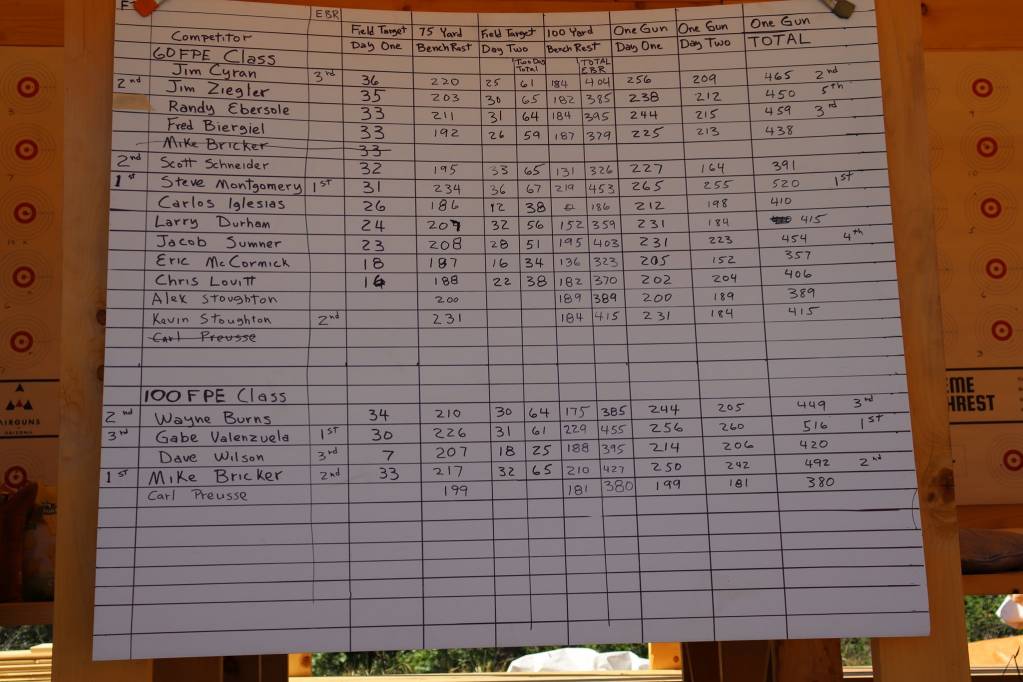 F
EBR
Competitor Field Target Day One 75 Yard Bench Rest Field Target Day Two 100 Yard Bench Rest One Gun Day One One Gun Day Two One Gun TOTAL
60 FPE Class Two Day Total TOTAL EBR
Jim Cyran 3rd 36 220 25 61 184 404 256 209 465 2nd
2nd Jim Ziegler 35 203 30 65 182 385 238 212 450 5th
Randy Ebersole 33 211 31 64 184 395 244 215 459 3rd
Fred Biergiel 33 192 26 59 187 379 225 213 438
Mike Bricker 33
2nd Scott Schneider 32 195 33 65 131 326 227 164 391
1st Steve Montgomery 1st 31 234 36 67 219 453 265 255 520 1st
Carlos Iglesias 26 186 12 38 186 212 198 410
Larry Durham 24 207 32 56 152 359 231 184 415
Jacob Sumner 23 208 28 51 195 403 231 223 454 4th
Eric McCormick 18 187 16 34 136 323 205 152 357
Chris Lovitt 188 22 38 182 370 202 204 406
Alex Stoughton 200 189 389 200 189 389
Kevin Stoughton 2nd 231 184 415 231 184 415
Carl Preusse
100 FPE Class
2nd Wayne Burns 34 210 30 64 175 385 244 205 449 3rd
3rd Gabe Valenzuela 1st 30 226 31 61 229 455 256 260 516 1st
Dave Wilson 3rd 7 207 18 25 188 395 214 206 420
1st Mike Bricker 2nd 33 217 32 65 210 427 250 242 492 2nd
Carl Preusse 199 181 380 199 181 380
AIRGUNS
ARIZONA
EME
HREST